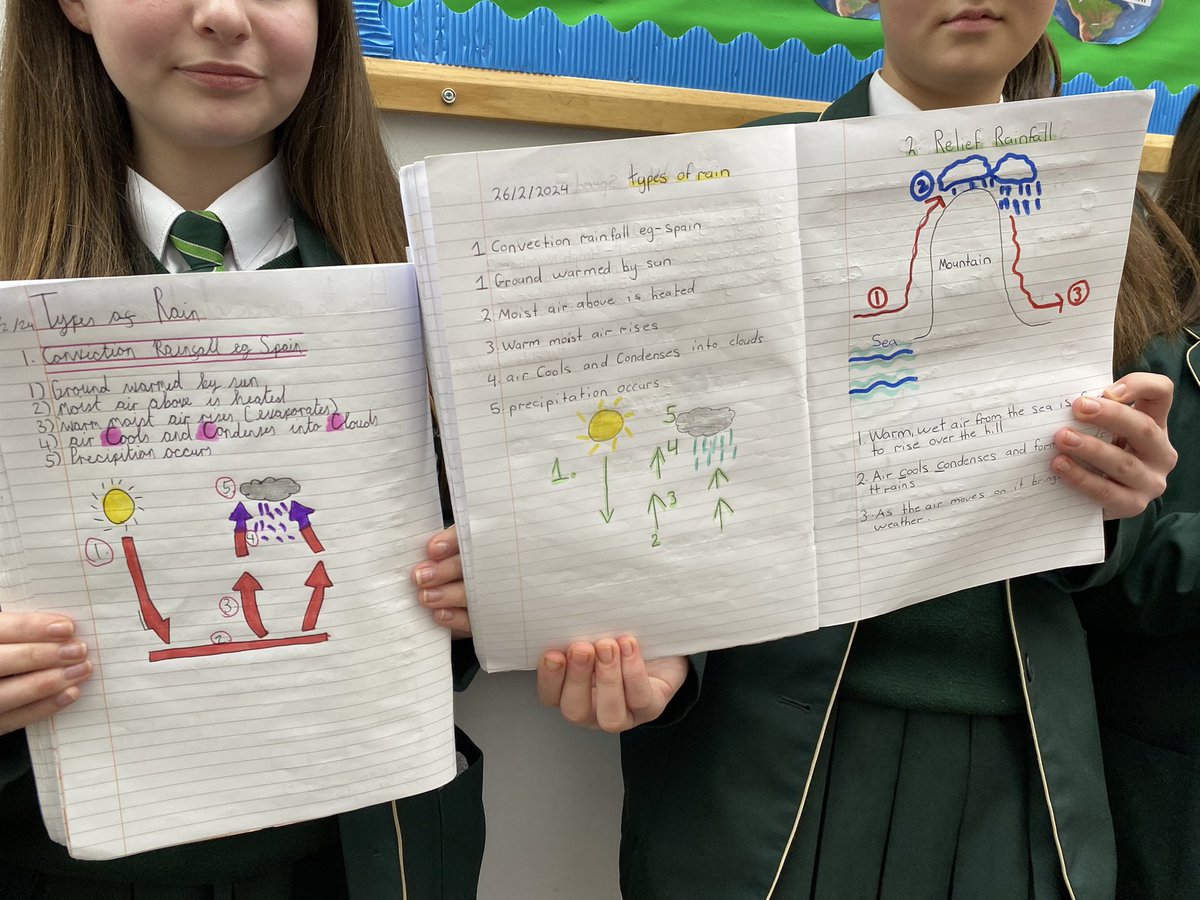 2/24
Types of Rain
1. Convection Rainfall eg Spain
1) Ground warmed by sun
2) Moist air above is heated
3) Warm moist air rises (evaporates)
4) air Cools and Condenses into Clouds
5) Precipition occurs
1.
5
4
3
2.
26/2/2024 types of rain
1 Convection rainfall eg-spain
1 Ground warmed by sun
2. Moist air above is heated
3. Warm moist air rises
4. air Cools and Condenses into clouds
5. precipitation occurs
1.
5
4
3
2
2 Relief Rainfall
2
Mountain
1
3
Sea
1. Warm, wet air from the sea is
to rise over the hill
2. Air cools condenses and
it rains
3. As the air moves on it
weather.